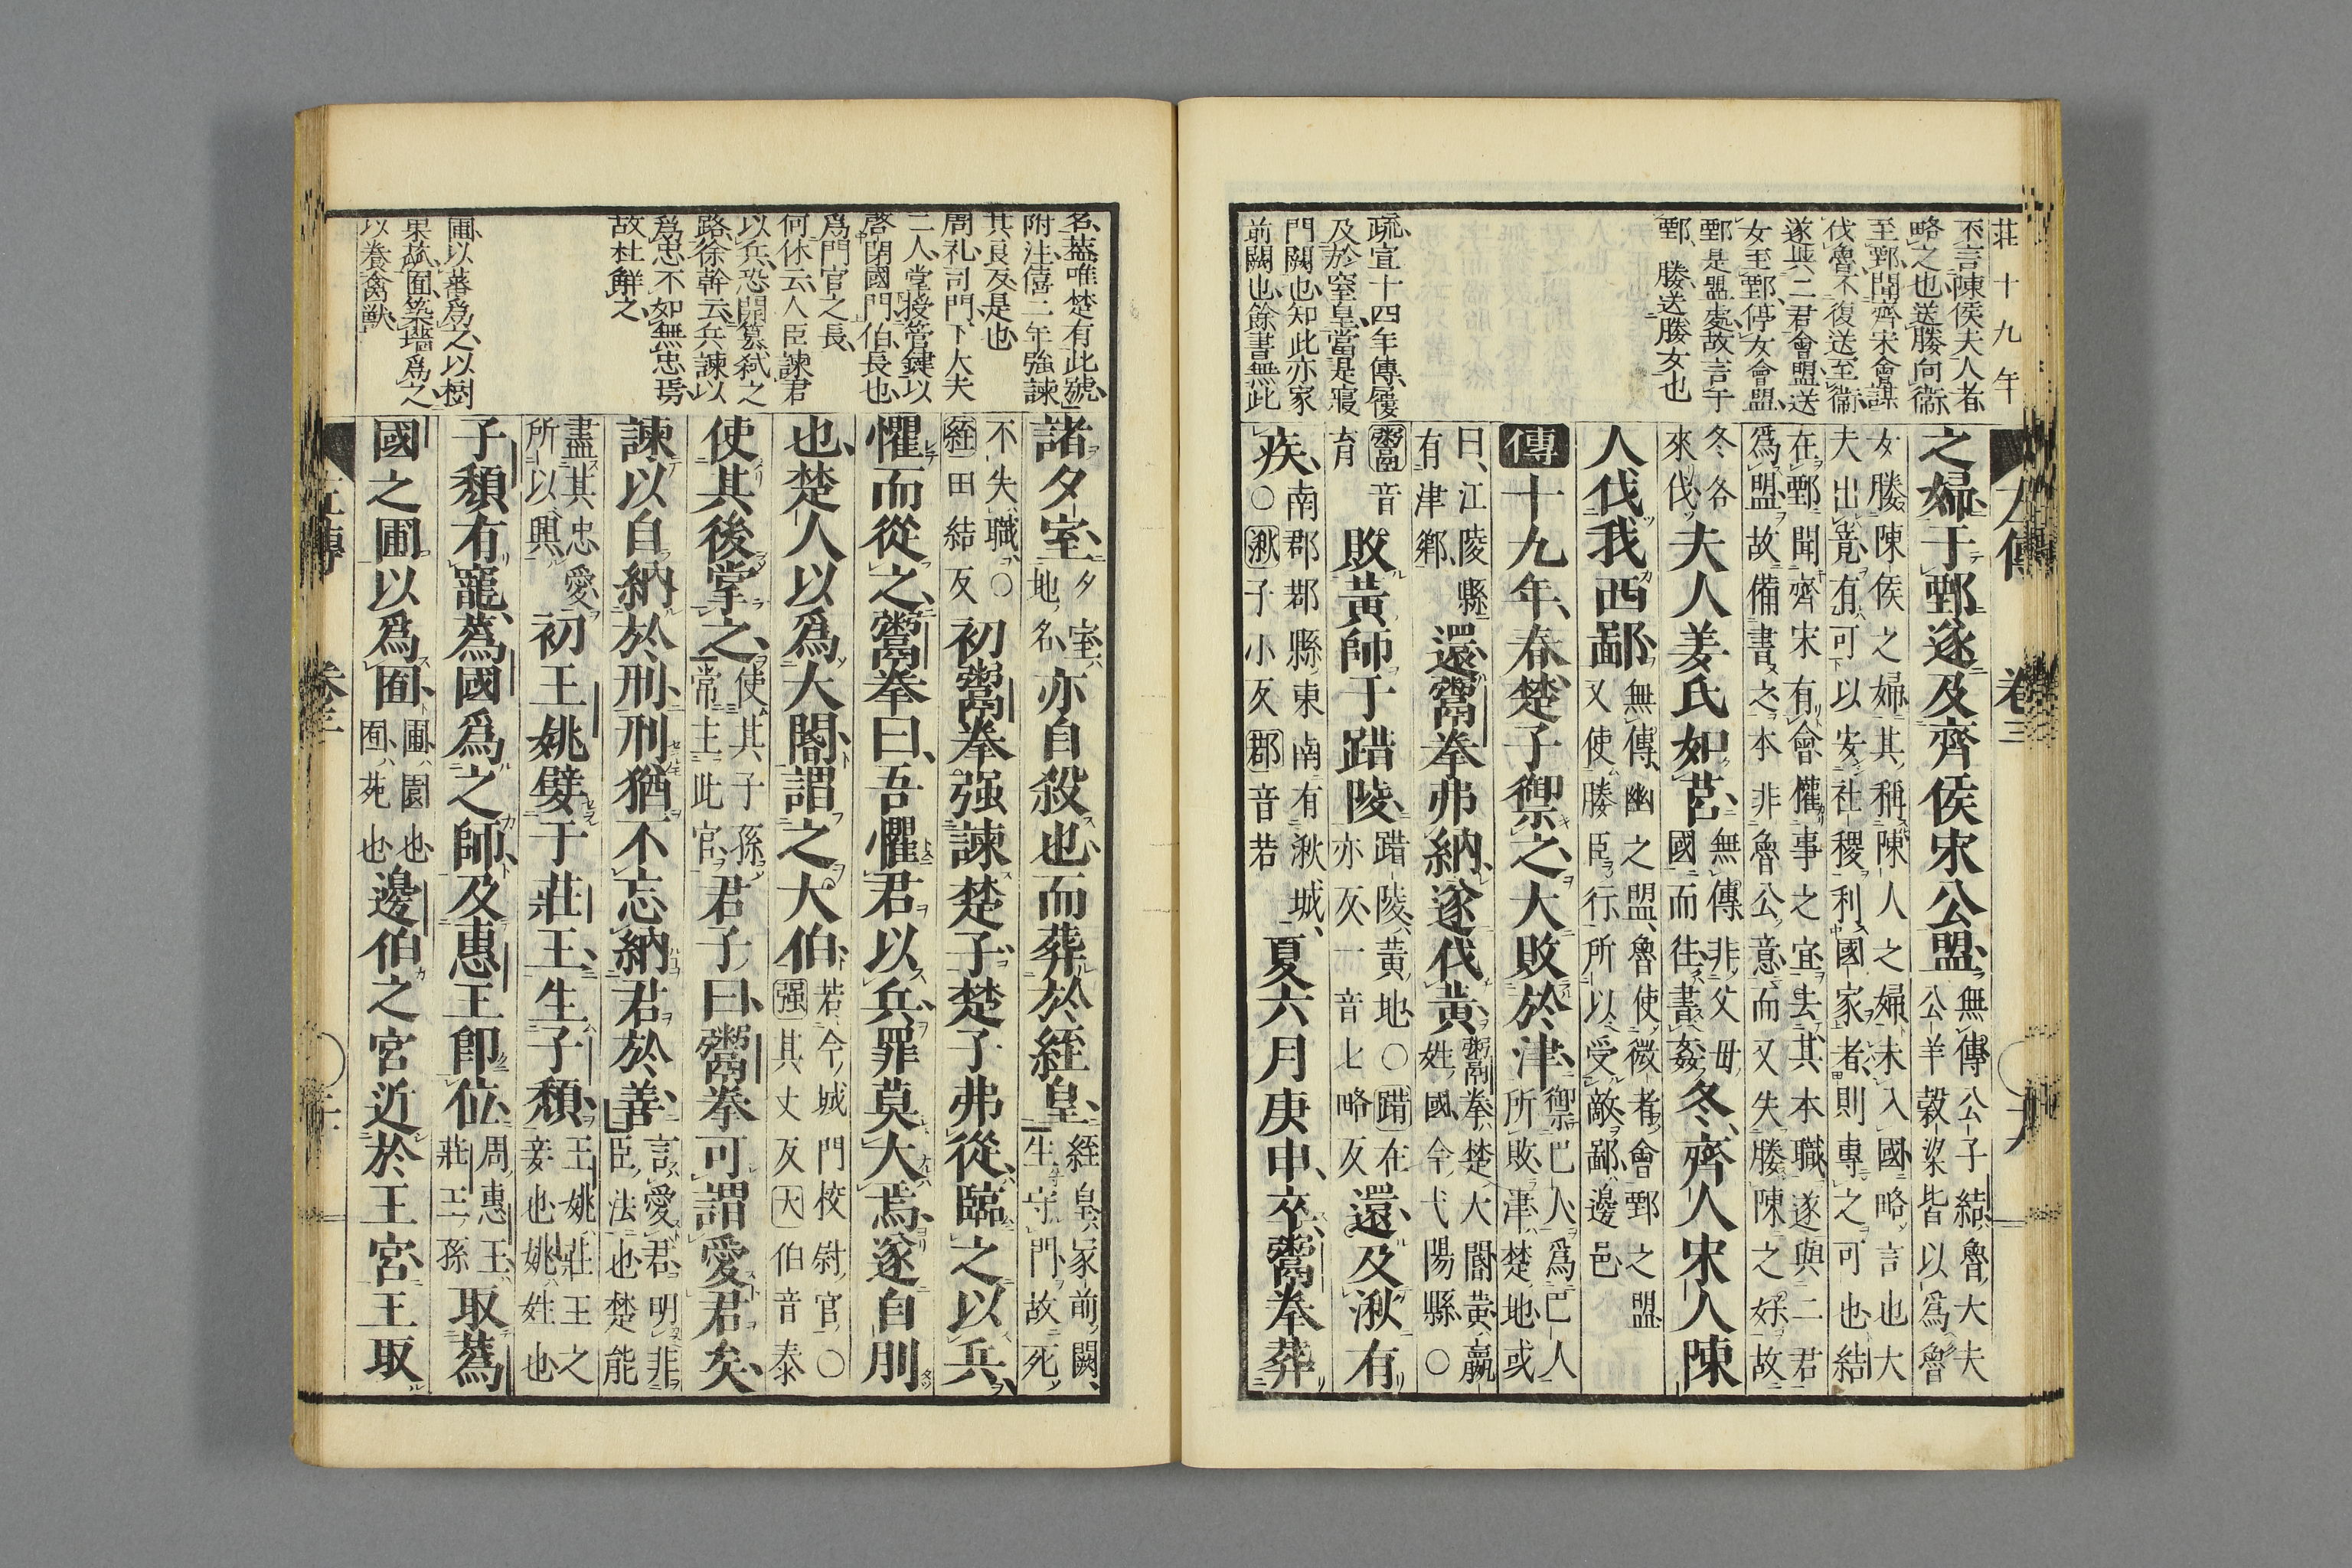 莊十九年
不言陳侯夫人者
略之也送媵向衞
至鄄聞齊宋會謀
伐魯不復送至衞
遂與二君會盟送
女至鄄停女會盟
鄄是盟處故言于
鄄 媵送媵女也
疏宣十四年傳屨
及於窒皇當是寢
門闕也知此亦冢
前闕也餘書無此
左傳 卷三
之婦于鄄遂及齊侯宋公盟
無傳公子結魯大夫
公羊穀梁皆以爲魯
女媵陳侯之婦其稱陳人之婦未入國略言也大
夫出竟有可以安社稷利國家者則專之可也結
在鄄聞齊宋有會權事之宜去其本職遂與二君
爲盟故備書之本非魯公意而又失媵陳之好故
冬各
來伐
夫人姜氏如莒
無傳非父母
國而往書姦
冬齊人宋人陳
人伐我西鄙
無傳幽之盟魯使微者會鄄之盟
又使媵臣行所以受敵鄙邊邑
傳十九年春楚子禦之大敗於津
禦巴人爲巴人
所敗津楚地或
曰江陵縣
有津鄉
還鬻拳弗納遂伐黃
鬻拳楚大閽黃嬴
姓國今弋陽縣〇
鬻音
育
敗黃師于踖陵
踖陵黃地〇踖在
亦反一音七略反
還及湫有
疾
南郡鄀縣東南有湫城
〇湫子小反鄀音若
夏六月庚申卒鬻拳葬
名蓋唯楚有此號
附注僖二年強諫
其良反是也
周礼司門下大夫
二人掌授管鍵以
啓閉國門伯長也
爲門官之長
何休云人臣諫君
以兵恐開篡弒之
路徐幹云兵諫以
爲忠不如無忠焉
故杜解之
圃以蕃爲之以樹
果蓏囿築墻爲之
以養禽獸
諸夕室
夕室
地名
亦自殺也而葬於絰皇
絰皇冢前闕
生守門故死
不失職〇
絰田結反
初鬻拳强諫楚子楚子弗從臨之以兵
懼而從之鬻拳曰吾懼君以兵罪莫大焉遂自刖
也楚人以爲大閽謂之大伯
若今城門校尉官〇
强其丈反大伯音泰
使其後掌之
使其子孫
常主此官
君子曰鬻拳可謂愛君矣
諫以自納於刑刑猶不忘納君於善
言愛君明非
臣法也楚能
盡其忠愛
所以興
初王姚嬖于莊王生子頹
王姚莊王之
妾也姚姓也
子頹有寵蒍國爲之師及惠王即位
周惠王
莊王孫
取蒍
國之圃以爲囿
圃園也
囿苑也
邊伯之宮近於王宮王取
左傳 卷三